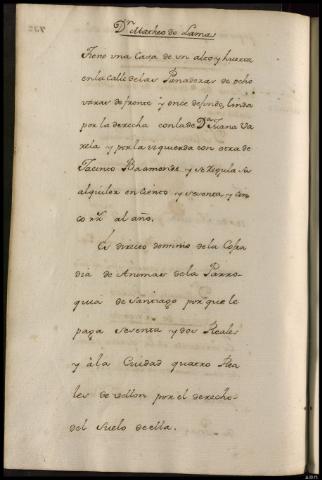 Dn. Matheo de Lamas
Tiene una Casa de un alto y huerta
en la Calle de las Panaderas de ocho
varas de frente y once de fondo, linda
por la derecha con la de Da. Juana Va
rela y por la izquierda con otra de
Jacinto Baamonde y se regula su
alquiler en ciento y sesenta y cin
co rs. al año.
Es directo dominio de la Cofra
dia de Animas de la Parro
quia de Santiago porque le
paga sesenta y dos Reales
y à la Ciudad quatro Rea
les de vellon por el derecho
del suelo de ella.